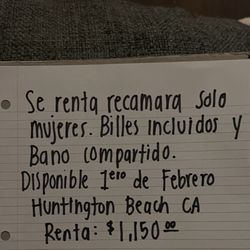 Se renta recamara solo
mujeres. Billes incluidos y
Bano compartido.
Disponible 1ero de Febrero
Huntington Beach CA
Renta: $1,150.00